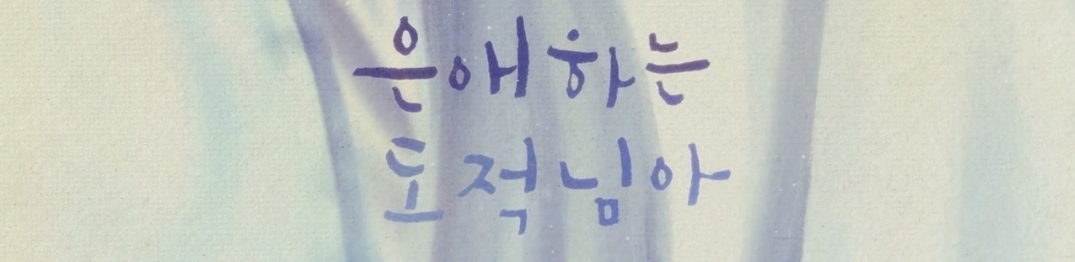 은애하는
도적님아